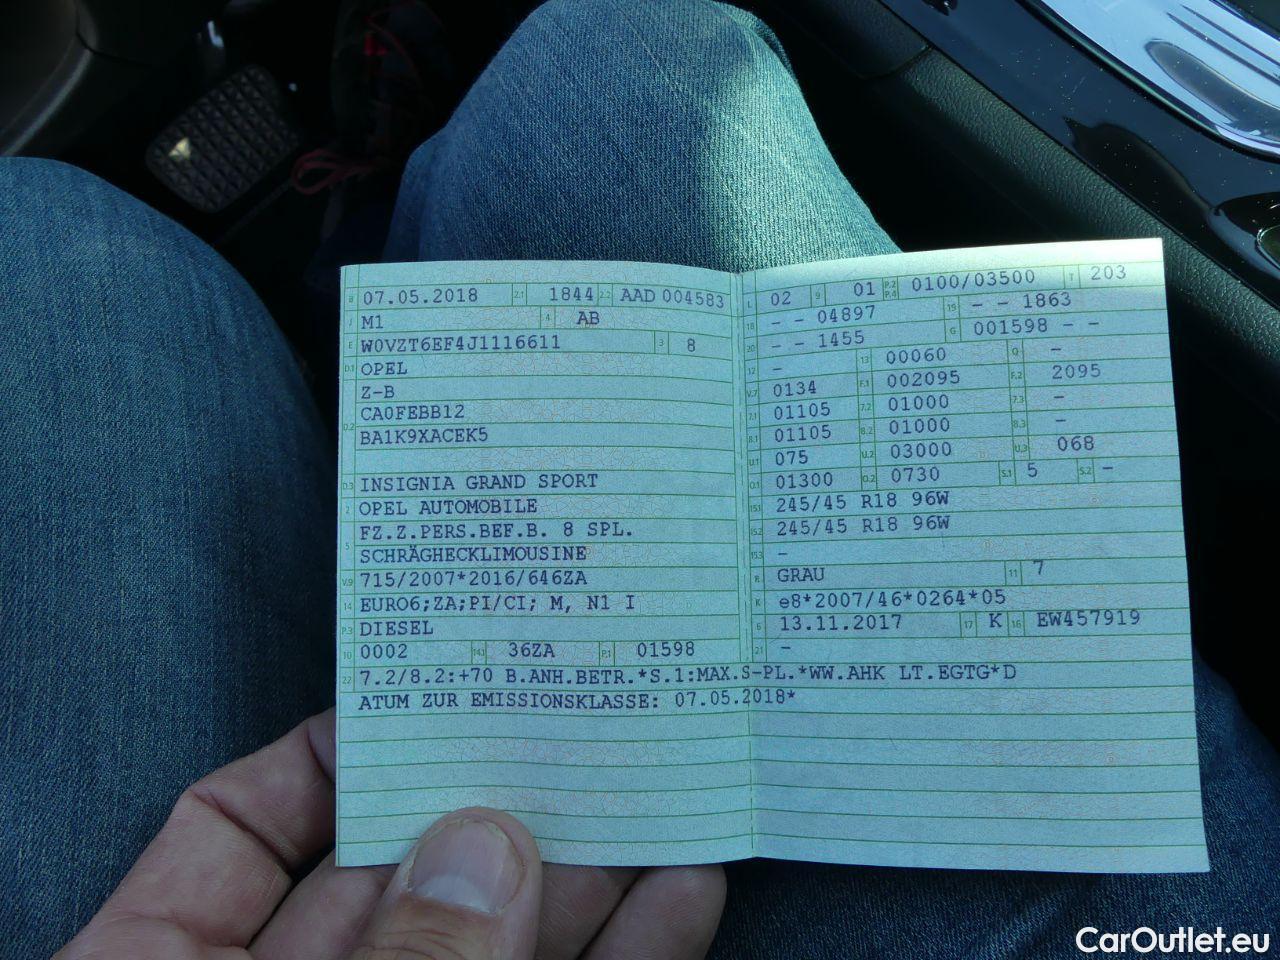 B 07.05.2018 2.1 1844 2.2 AAD 004583
J M1 4 AB
E W0VZT6EF4J1116611 3 8
D.1 OPEL
Z-B
D.2 CA0FEBB12
BA1K9XACEK5
D.3 INSIGNIA GRAND SPORT
2 OPEL AUTOMOBILE
5 FZ.Z.PERS.BEF.B. 8 SPL.
SCHRÄGHECKLIMOUSINE
V.9 715/2007*2016/646ZA
14 EURO6;ZA;PI/CI; M, N1 I
P.3 DIESEL
10 0002 14.1 36ZA P.1 01598
L 02 9 01 P.2 P.4 0100/03500 T 203
18 - - 04897 19 - - 1863
20 - - 1455 G 001598 - -
12 - 13 00060 Q -
V.7 0134 F.1 002095 F.2 2095
7.1 01105 7.2 01000 7.3 -
8.1 01105 8.2 01000 8.3 -
U.1 075 U.2 03000 U.3 068
O.1 01300 O.2 0730 S.1 5 S.2 -
15.1 245/45 R18 96W
15.2 245/45 R18 96W
15.3 -
R GRAU 11 7
K e8*2007/46*0264*05
6 13.11.2017 17 K 16 EW457919
21 -
22 7.2/8.2:+70 B.ANH.BETR.*S.1:MAX.S-PL.*WW.AHK LT.EGTG*D
ATUM ZUR EMISSIONSKLASSE: 07.05.2018*
CarOutlet.eu